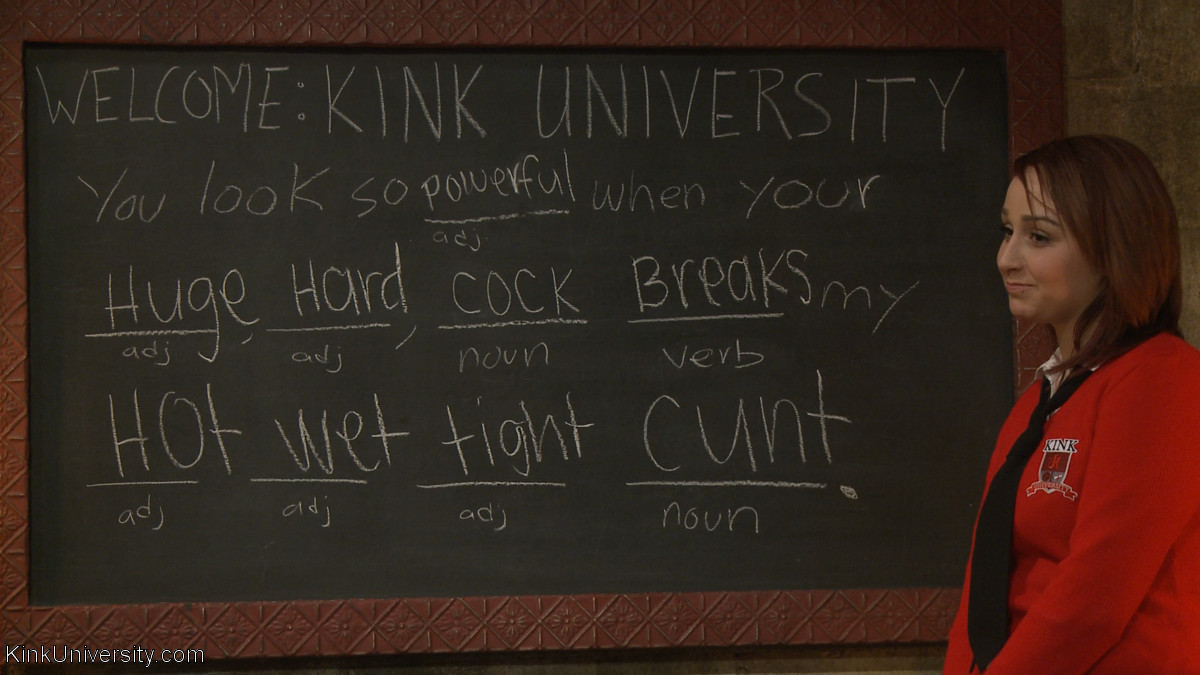 WELCOME: KINK UNIVERSITY
You look so powerful when your
adj.
Huge, Hard, COCK Breaks my
adj adj noun verb
HOt wet tight cunt.
adj adj adj noun
KINK
UNIVERSITY
KinkUniversity.com